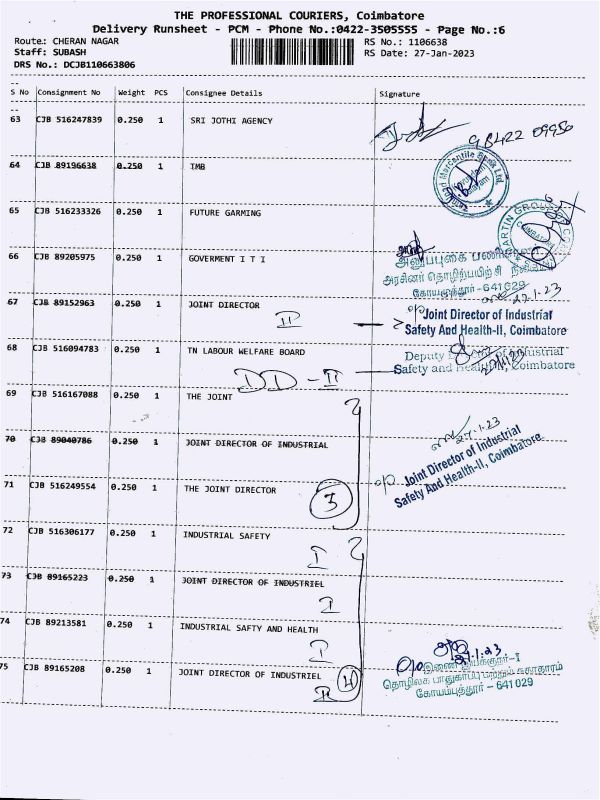 THE PROFESSIONAL COURIERS, Coimbatore
Delivery Runsheet - PCM - Phone No.:0422-3505555 - Page No.:6
Route: CHERAN NAGAR
RS No.: 1106638
Staff: SUBASH
RS Date: 27-Jan-2023
DRS No.: DCJB110663806
S No Consignment No Weight PCS Consignee Details Signature
63 CJB 516247839 0.250 1 SRI JOTHI AGENCY
98422 09956
64 CJB 89196638 0.250 1 TMB
65 CJB 516233326 0.250 1 FUTURE GARMING
MARTIN GROUP
COIMBATORE
66 CJB 89205975 0.250 1 GOVERMENT I T I
அரசினர் தொழிற்பயிற்சி
கோயமுத்தூர் - 641029
27.1.23
67 CJB 89152963 0.250 1 JOINT DIRECTOR
II
Joint Director of Industrial
Safety And Health-II, Coimbatore
68 CJB 516094783 0.250 1 TN LABOUR WELFARE BOARD
DD - II
Deputy
Industrial
Safety and Health-II, Coimbatore
69 CJB 516167088 0.250 1 THE JOINT
27.1.23
70 CJB 89040786 0.250 1 JOINT DIRECTOR OF INDUSTRIAL
Joint Director of Industrial
Safety And Health-II, Coimbatore
71 CJB 516249554 0.250 1 THE JOINT DIRECTOR
3
72 CJB 516306177 0.250 1 INDUSTRIAL SAFETY
I
73 CJB 89165223 0.250 1 JOINT DIRECTOR OF INDUSTRIEL
I
74 CJB 89213581 0.250 1 INDUSTRIAL SAFTY AND HEALTH
I
75 CJB 89165208 0.250 1 JOINT DIRECTOR OF INDUSTRIEL
II
4
இணை இயக்குநர்-I
தொழிலக பாதுகாப்பு மற்றும் சுகாதாரம்
கோயம்புத்தூர் - 641029